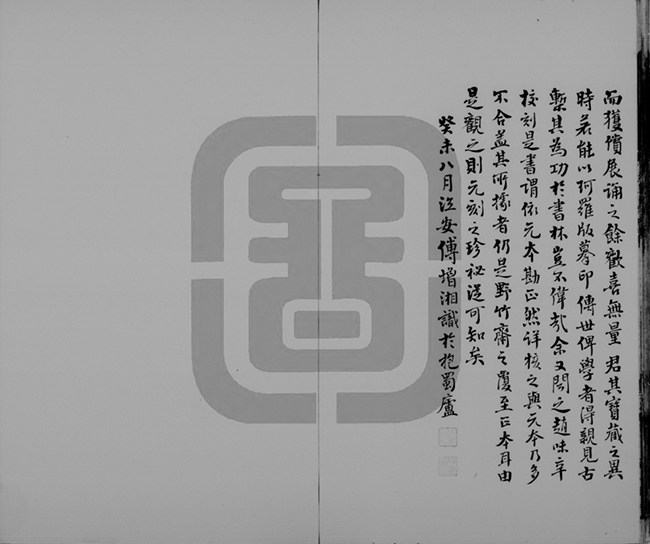 而獲償展誦之餘歡喜無量君其寶藏之異
時若能以珂羅版摹印傳世俾學者得親見古
槧其為功於書林豈不偉哉余又聞之趙味辛
校刻是書謂依元本勘正然詳核之與元本乃多
不合蓋其所據者仍是野竹齋之覆至正本耳由
是觀之則元刻之珍祕從可知矣
癸未八月江安傅增湘識於抱蜀廬